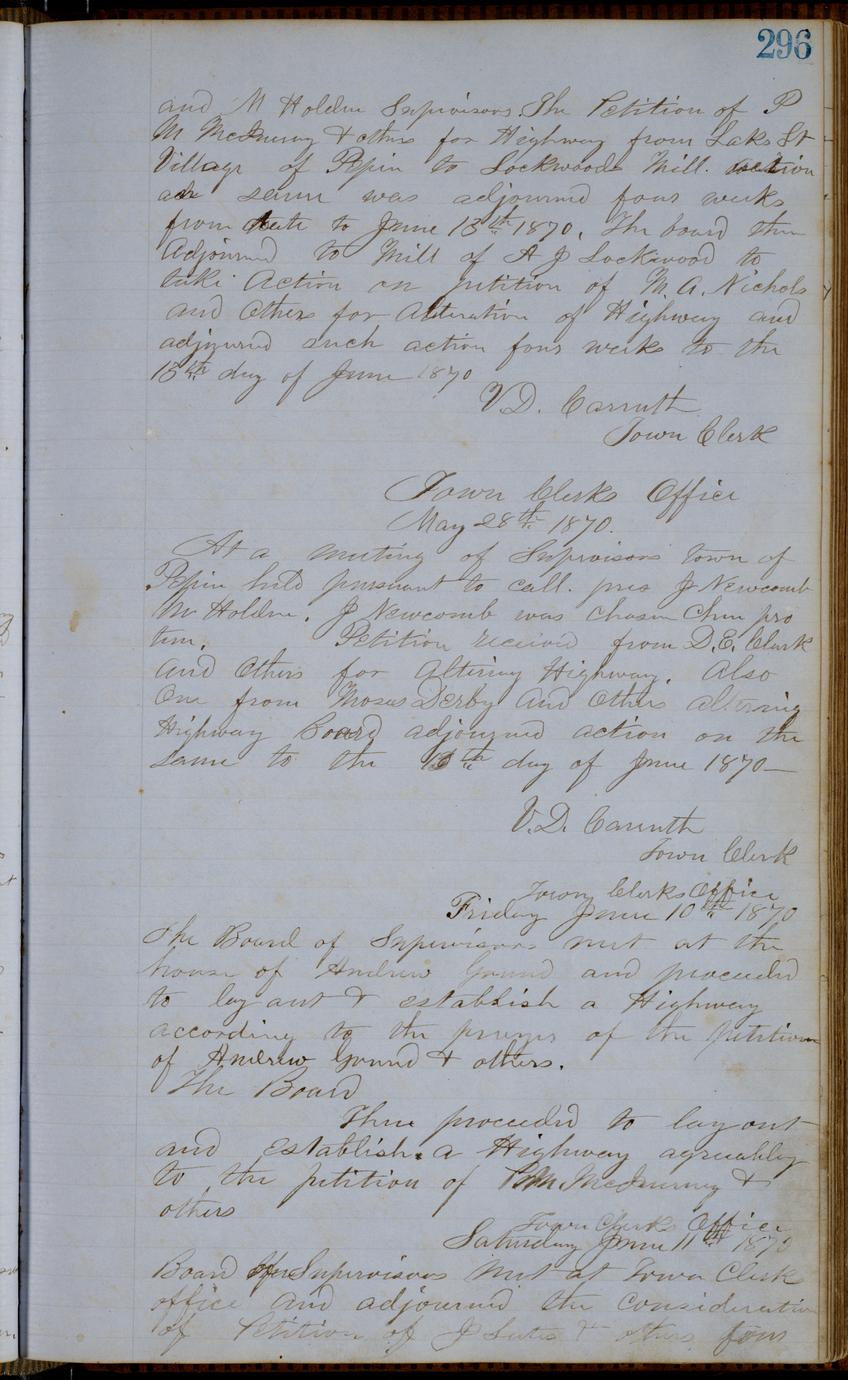 296
and M Holden Supervisors. The Petition of P
M. McInerny & others for Highway from Lake St
Village of Pepin to Lockwoods Mill. action
on same was adjourned four weeks
from date to June 13th 1870. The board then
Adjourned to Mill of A J Lockwood to
take Action on petition of M. A. Nichols
and Others for Alteration of Highway and
adjourned such action four weeks to the
13th day of June 1870
V. D. Carruth
Town Clerk
Town Clerks Office
May 28th 1870.
At a meeting of Supervisors town of
Pepin held pursuant to call. pres J Newcomb
M Holden. J Newcomb was chosen Chm pro
tem. Petition received from D. E. Clark
and Others for altering Highway. Also
One from Moses Derby and Others altering
Highway Board adjourned action on the
same to the 13th day of June 1870
V. D. Carruth
Town Clerk
Town Clerks Office
Friday June 10th 1870
The Board of Supervisors met at the
house of Andrew and proceeded
to lay out & establish a Highway
according to the prayer of the petition
of Andrew & others.
The Board
Then proceeded to lay out
and Establish a Highway agreeably
to the petition of P M McInerny &
others
Town Clerks Office
Saturday June 11th 1870
Board of Supervisors met at Town Clerk
office and adjourned the consideration
of Petition of J & others four